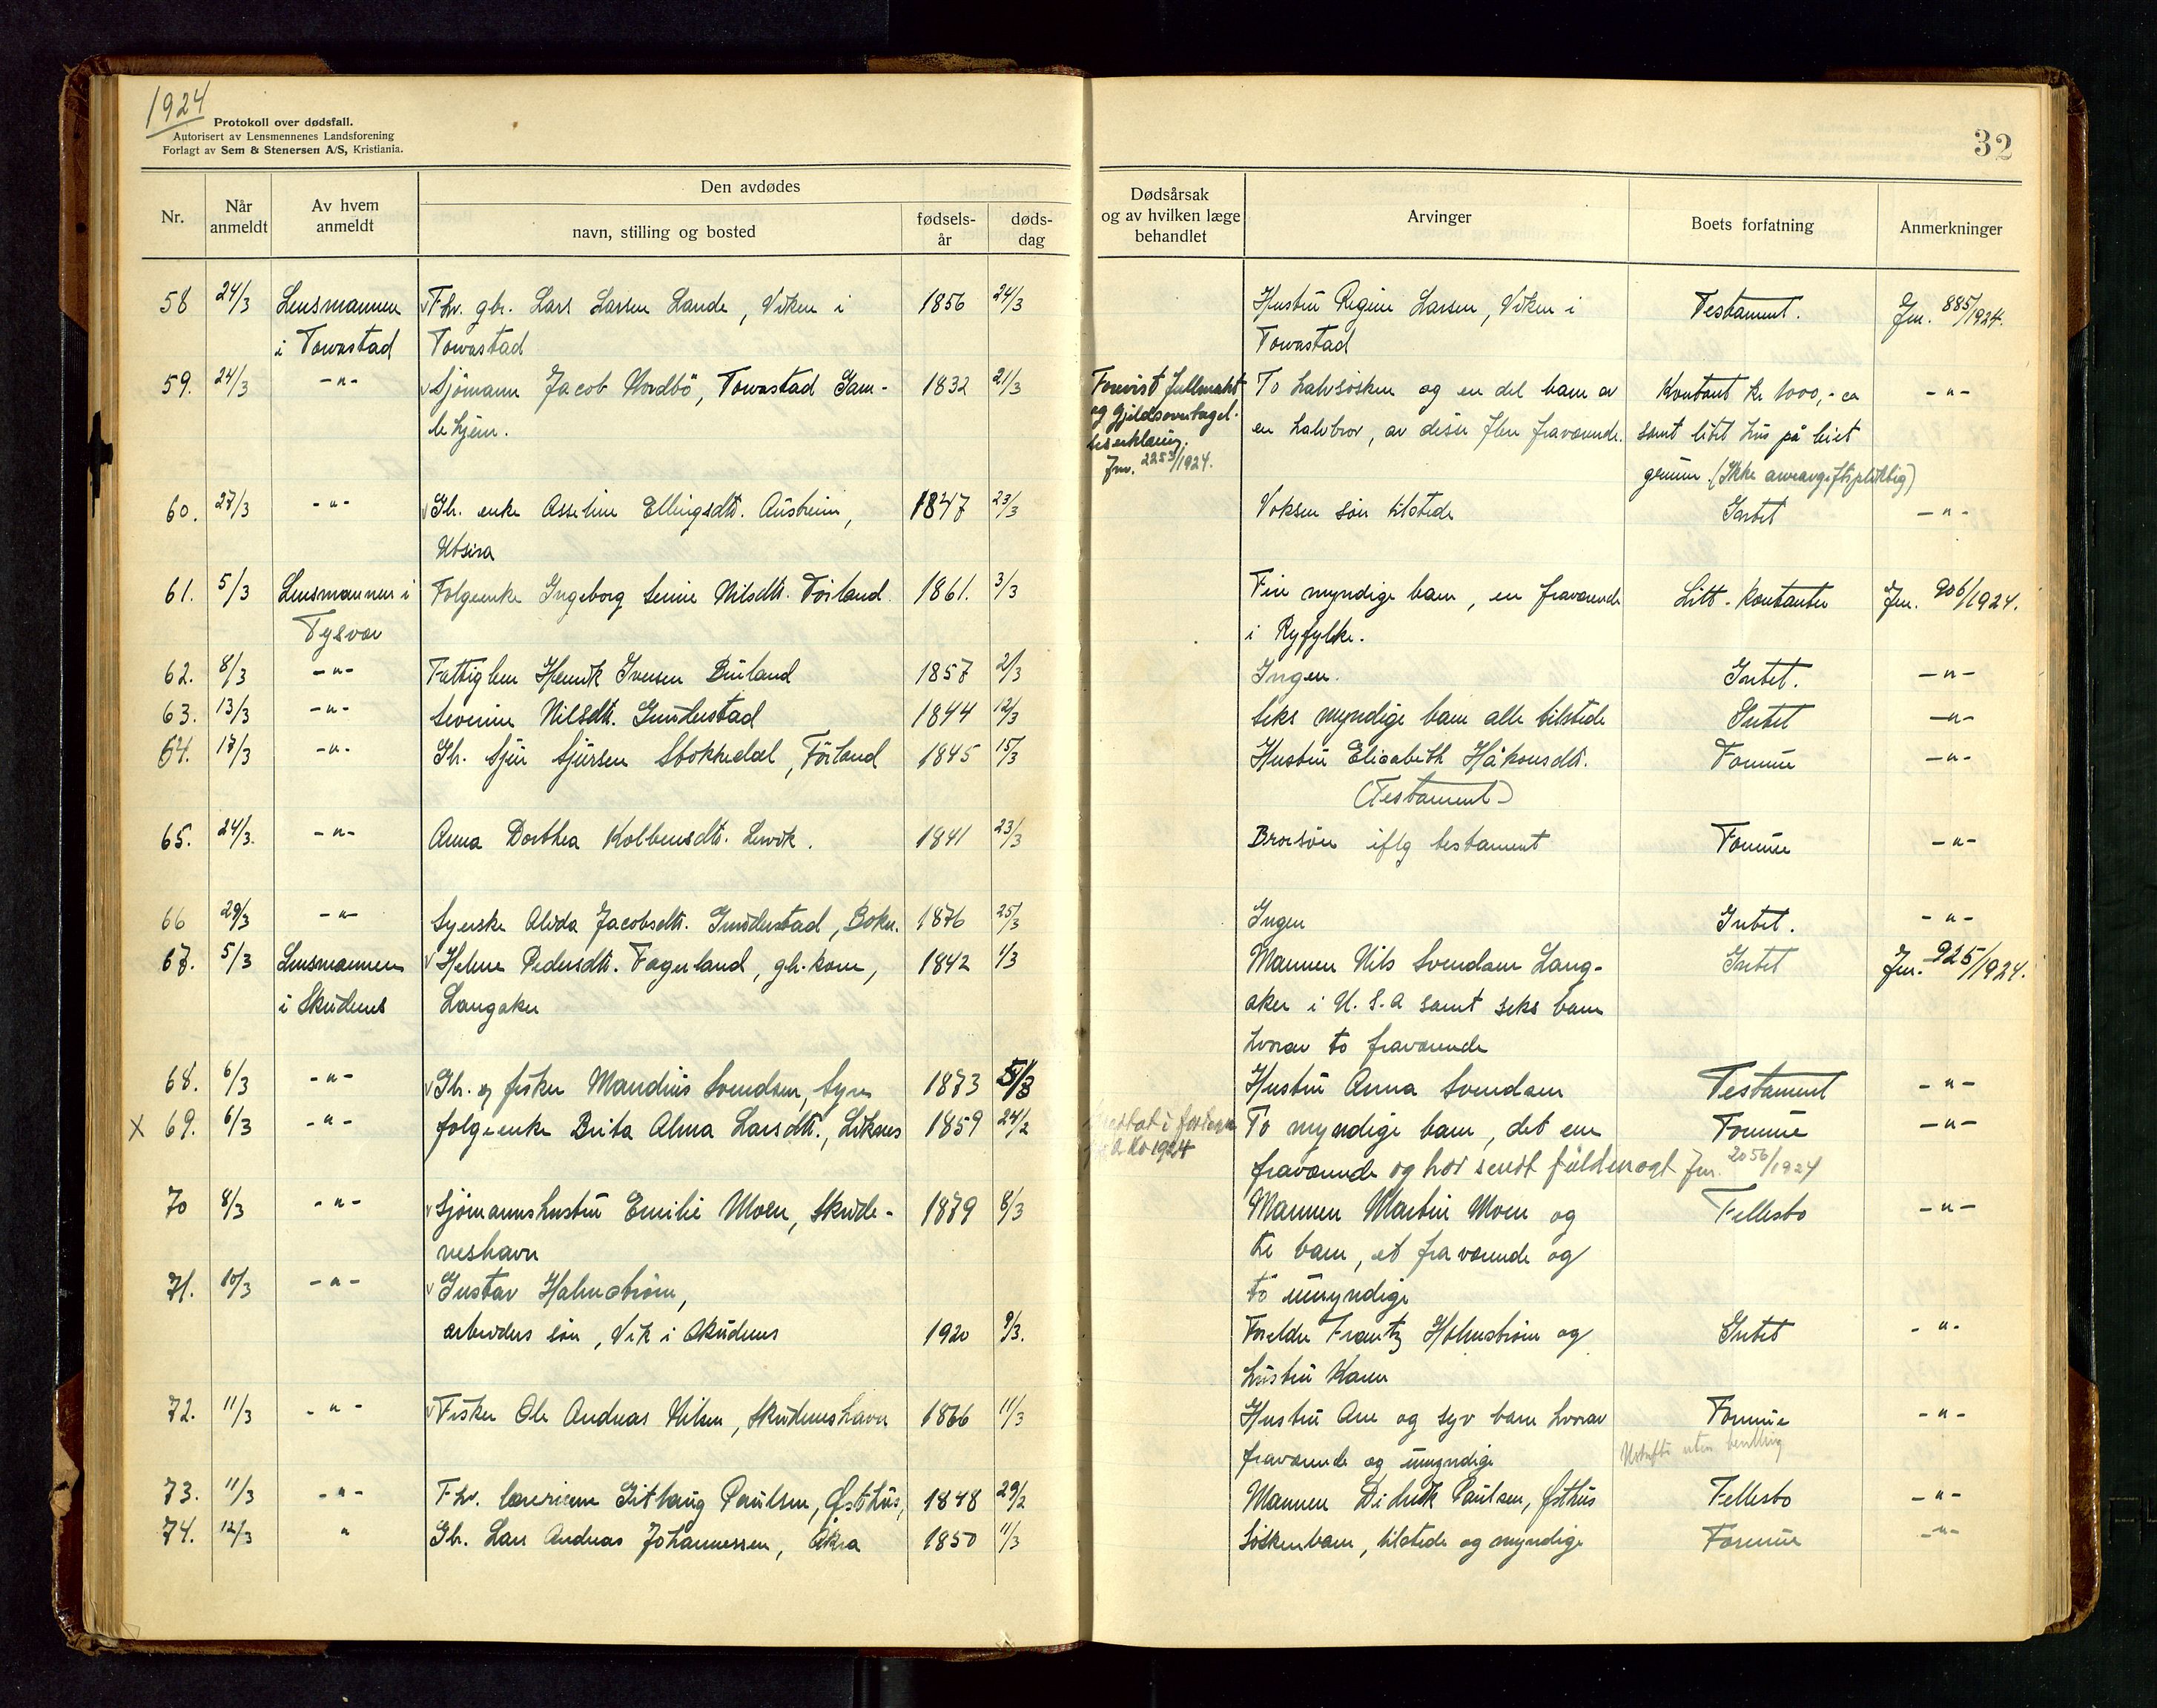 1924
Protokoll over dødsfall.
Autorisert av Lensmennenes Landsforening
Forlagt av Sem & Stenersen A/S, Kristiania.
32
Nr.
Når anmeldt
Av hvem anmeldt
Den avdødes
navn, stilling og bosted
fødsels-år
døds-dag
Dødsårsak og av hvilken læge behandlet
Arvinger
Boets forfatning
Anmerkninger
58 24/3 Lensmannen Fhv. gbr. Lars Larsen Lande, Viken i 1856 24/3 Hustru Regine Larsen, Viken i Testament. Jnr. 885/1924.
i Torvastad Torvastad Torvastad
59. 24/3 -"- Sjömann Jacob Nordbö, Torvastad Gam- 1832 21/3 Forevist fullmakt To halvsösken og en del barn av Kontant kr 1000,- ca -"-
lehjem. og gjeldsovertagel- en halvbror, av disse flere fraværende. samt litet hus på leiet
seserklæring.
Jnr. 2253/1924. grunn. (Ikke arveavgiftspliktig)
60. 27/3 -"- Gbr. enke Asseline Ellingsdtr. Austreim, 1847 23/3 Voksen sön tilstede Intet -"-
Utsira
61. 5/3 Lensmannen i Folgeenke Ingeborg Serine Nilsdtr. Förland 1861. 3/3 Fire myndige barn, en fraværende Litt kontanter Jnr. 906/1924.
Tysvær i Ryfylke.
62. 8/3 -"- Fattiglem Henrik Iversen Buland 1857 2/3 Ingen. Intet. -"-
63. 13/3 -"- Severine Nilsdtr. Gunderstad 1844 12/3 Seks myndige barn alle tilstede Intet -"-
64. 17/3 -"- Gbr. Sjur Sjursen Stokkedal, Förland 1845 15/3 Hustru Elisabeth Håkonsdtr. Formue -"-
(Testament)
65. 24/3. -"- Anna Dorthea Kolbensdtr. Lervik. 1841 23/3 Brorsön iflg testament Formue -"-
66 29/3 -"- Syerske Alida Jacobsdtr. Gunderstad, Bokn. 1876 25/3 Ingen Intet. -"-
67. 5/3 Lensmannen Helene Pedersdtr. Fagerland, gbr.kone, 1842 1/3 Mannen Nils Svendsen Lang- Intet Jnr. 925/1924.
i Skudenes Langaker aker i U.S.A samt seks barn
hvorav to fraværende
68. 6/3 -"- Gbr. og fisker Mandius Svendsen, Syre 1873 5/3 Hustru Anna Svendsen Testament -"-
X 69. 6/3 -"- folgeenke Brita Alma Larsdtr., Liknes 1859 24/2 To myndige barn, det ene Formue -"-
1924 fraværende og har sendt fuldmagt Jnr. 2056/1924
70 8/3 -"- Sjömannshustru Emilie Moen, Skude- 1879 8/3 Mannen Martin Moen og Fellesbo -"-
neshavn tre barn, et fraværende og
71. 10/3 -"- Gustav Holmström, to umyndige
arbeiders sön, Vik i Skudenes 1920 9/3. Foreldre Frantz Holmström og Intet -"-
hustru Karen
72. 11/3 -"- Fisker Ole Andreas Nilsen, Skudeneshavn 1866 11/3 Hustru Ane og syv barn hvorav Formue -"-
fraværende og umyndige
73. 11/3 -"- Fhv. lærerinne Gitlaug Paulsen, Østhus, 1848 29/2 Mannen Didrik Paulsen, Østhus Fellesbo -"-
74. 12/3 " Gbr. Lars Andreas Johannessen, Åkra 1850 11/3 Söskenbarn, tilstede og myndige Formue -"-